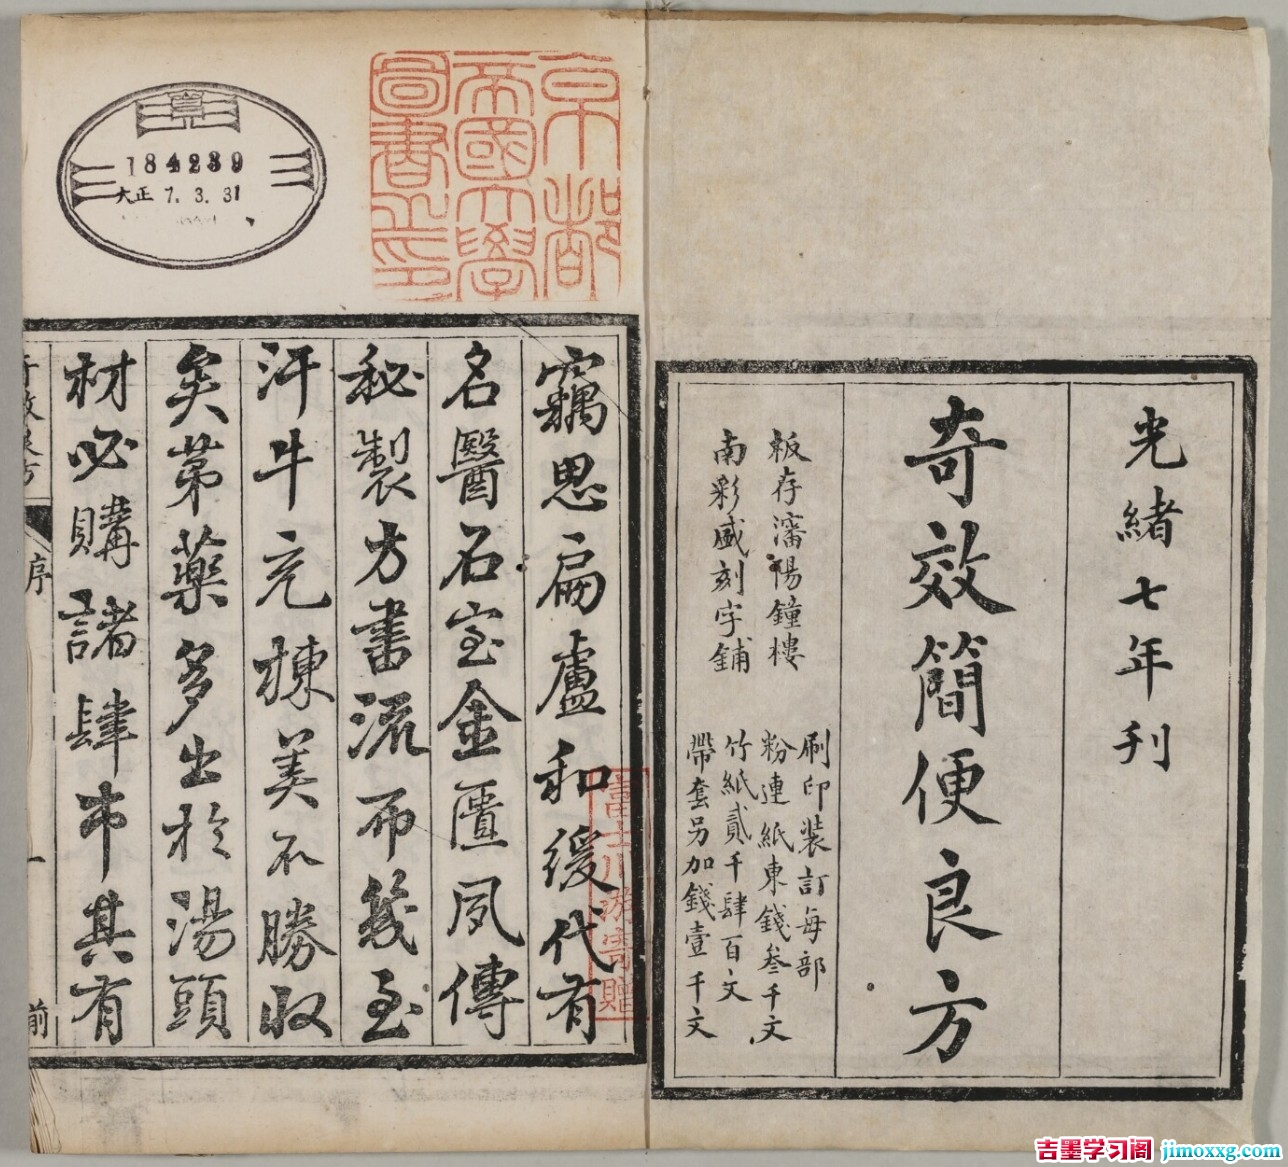 光緒七年刊
奇效簡便良方
板存瀋陽鐘樓
南彩盛刻字鋪
刷印裝訂每部
粉連紙東錢叄千文
竹紙貳千肆百文
帶套另加錢壹千文
京都
帝國大學
圖書之印
184239
大正 7. 3. 31
竊思扁盧和緩代有
名醫石室金匱夙傳
秘製方書流布幾至
汗牛充棟美不勝收
矣第藥多出於湯頭
材必購諸肆中其有
序
一
前
富士川游寄贈
吉墨学习阁 jimoxxg.com